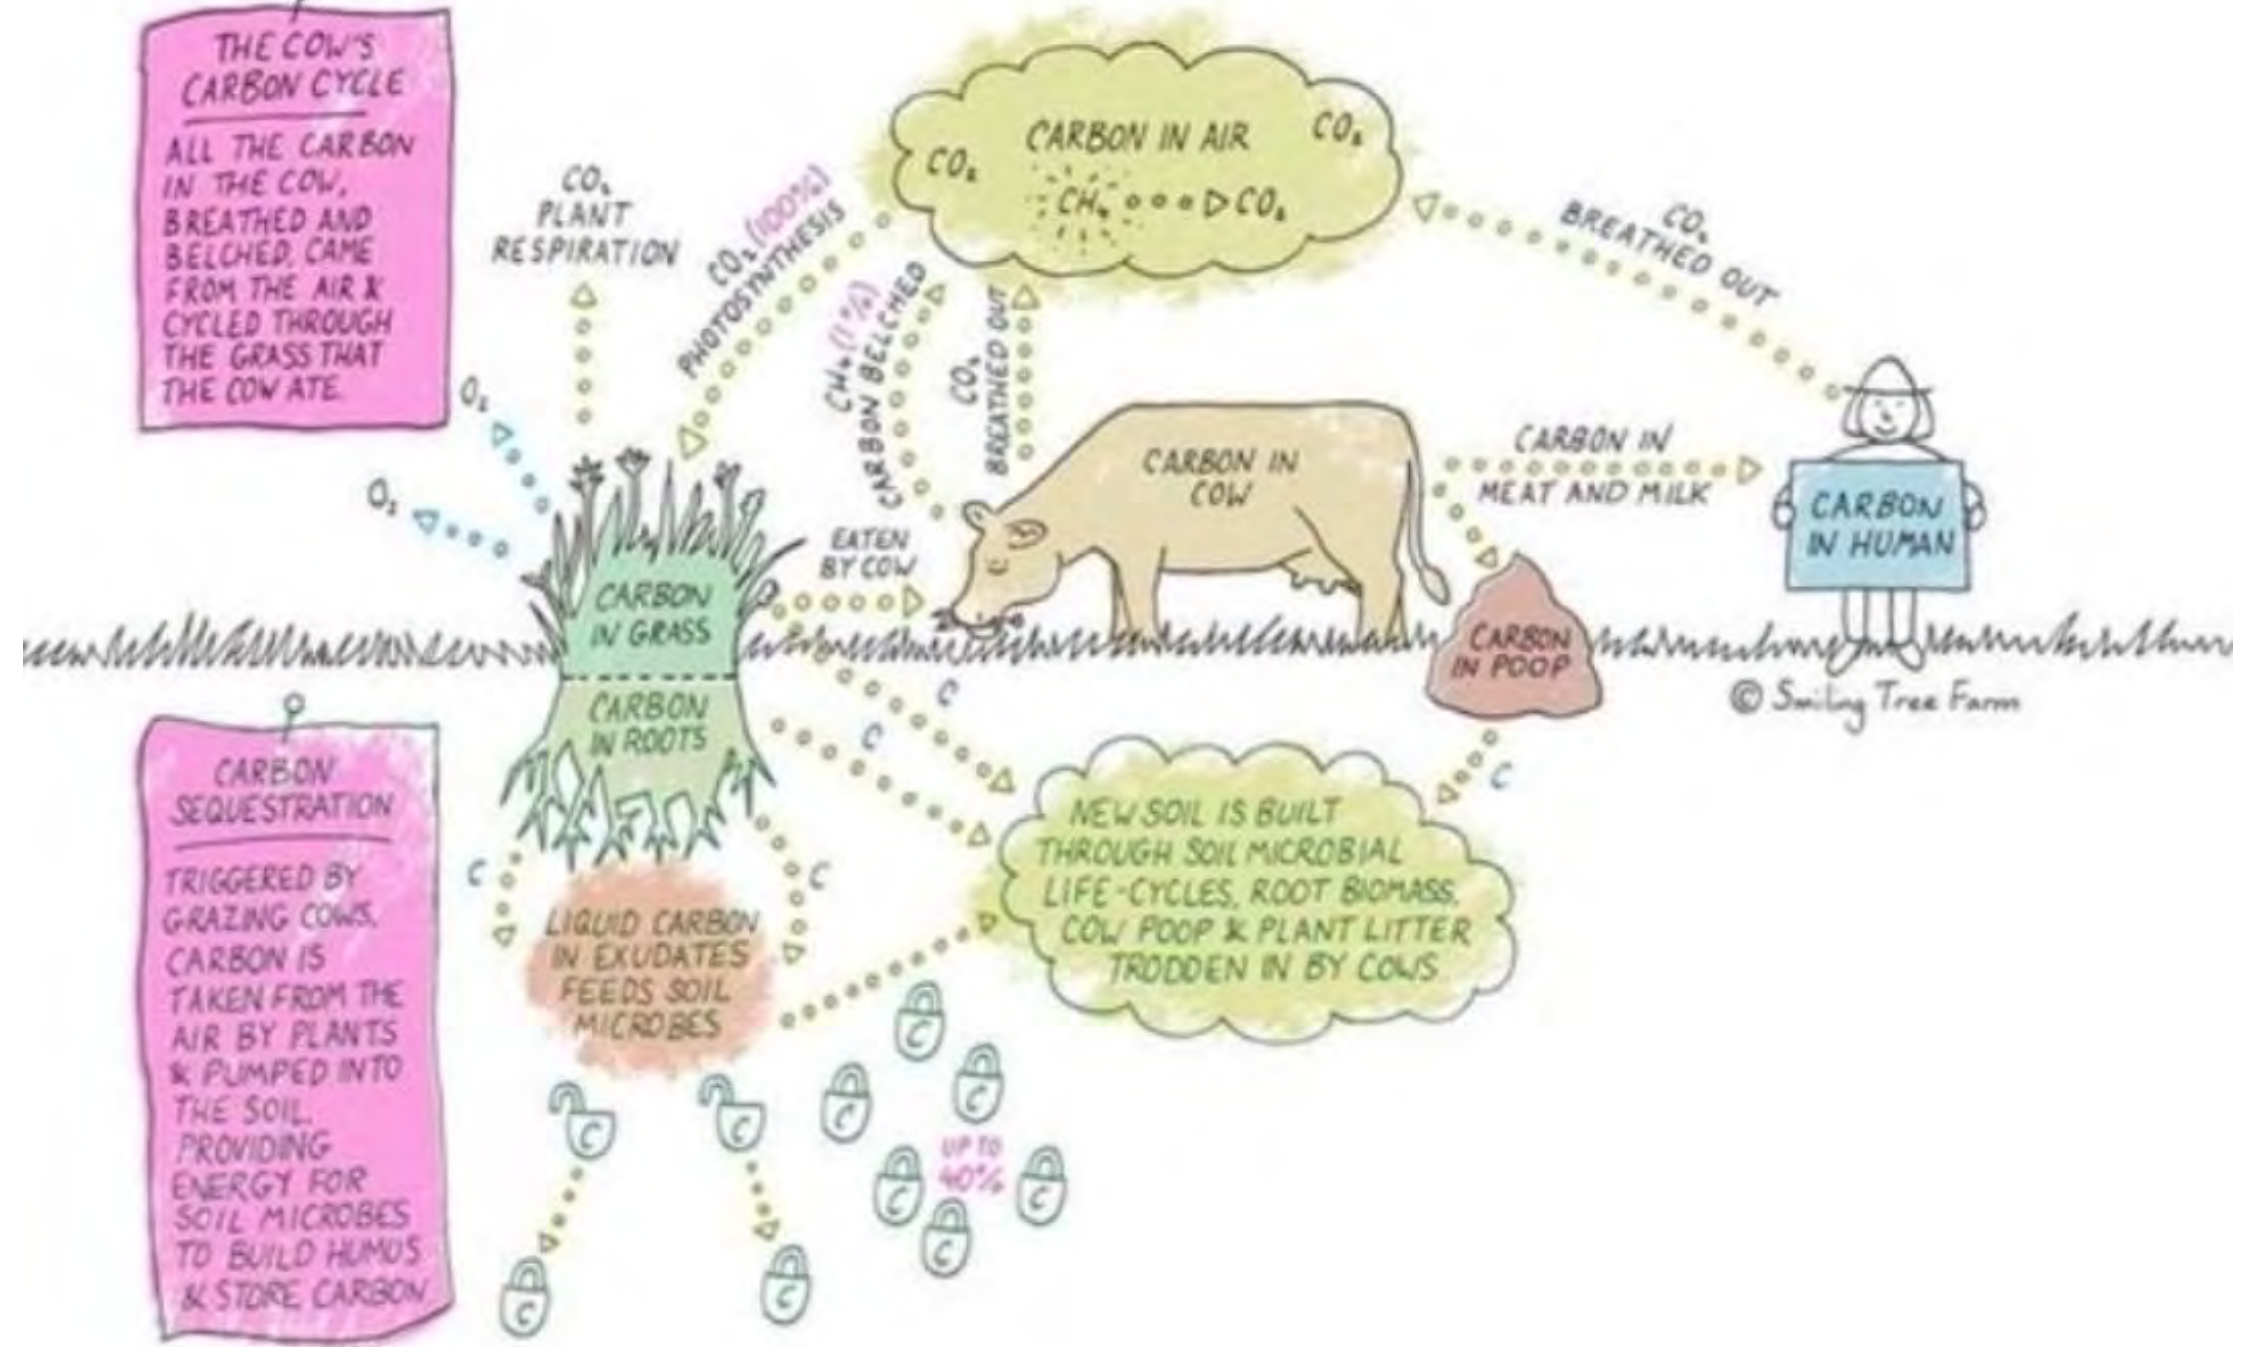 THE COW'S
CARBON CYCLE
ALL THE CARBON
IN THE COW,
BREATHED AND
BELCHED, CAME
FROM THE AIR &
CYCLED THROUGH
THE GRASS THAT
THE COW ATE.
CO₂
PLANT
RESPIRATION
O₂
O₂
CO₂ (100%)
PHOTOSYNTHESIS
CARBON IN AIR
CO₂
CO₂
CH₄ CO₂
CH₄ (1%)
CARBON BELCHED
CO₂
BREATHED OUT
CO₂
BREATHED OUT
EATEN
BY COW
CARBON IN
COW
CARBON IN
MEAT AND MILK
CARBON
IN HUMAN
CARBON
IN GRASS
CARBON
IN ROOTS
CARBON
IN POOP
© Smiling Tree Farm
C
C
C
C
C
CARBON
SEQUESTRATION
TRIGGERED BY
GRAZING COWS,
CARBON IS
TAKEN FROM THE
AIR BY PLANTS
& PUMPED INTO
THE SOIL,
PROVIDING
ENERGY FOR
SOIL MICROBES
TO BUILD HUMUS
& STORE CARBON
LIQUID CARBON
IN EXUDATES
FEEDS SOIL
MICROBES
NEW SOIL IS BUILT
THROUGH SOIL MICROBIAL
LIFE-CYCLES, ROOT BIOMASS,
COW POOP & PLANT LITTER
TRODDEN IN BY COWS
C
C
C
C
C
C
UP TO
40%
C
C
C
C